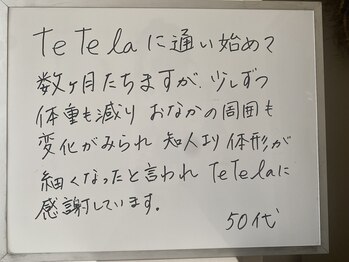 teTelaに通い始めて
数ヶ月たちますが、少しずつ
体重も減り おなかの周囲も
変化がみられ 知人より体形が
細くなったと言われ TeTelaに
感謝しています。
50代